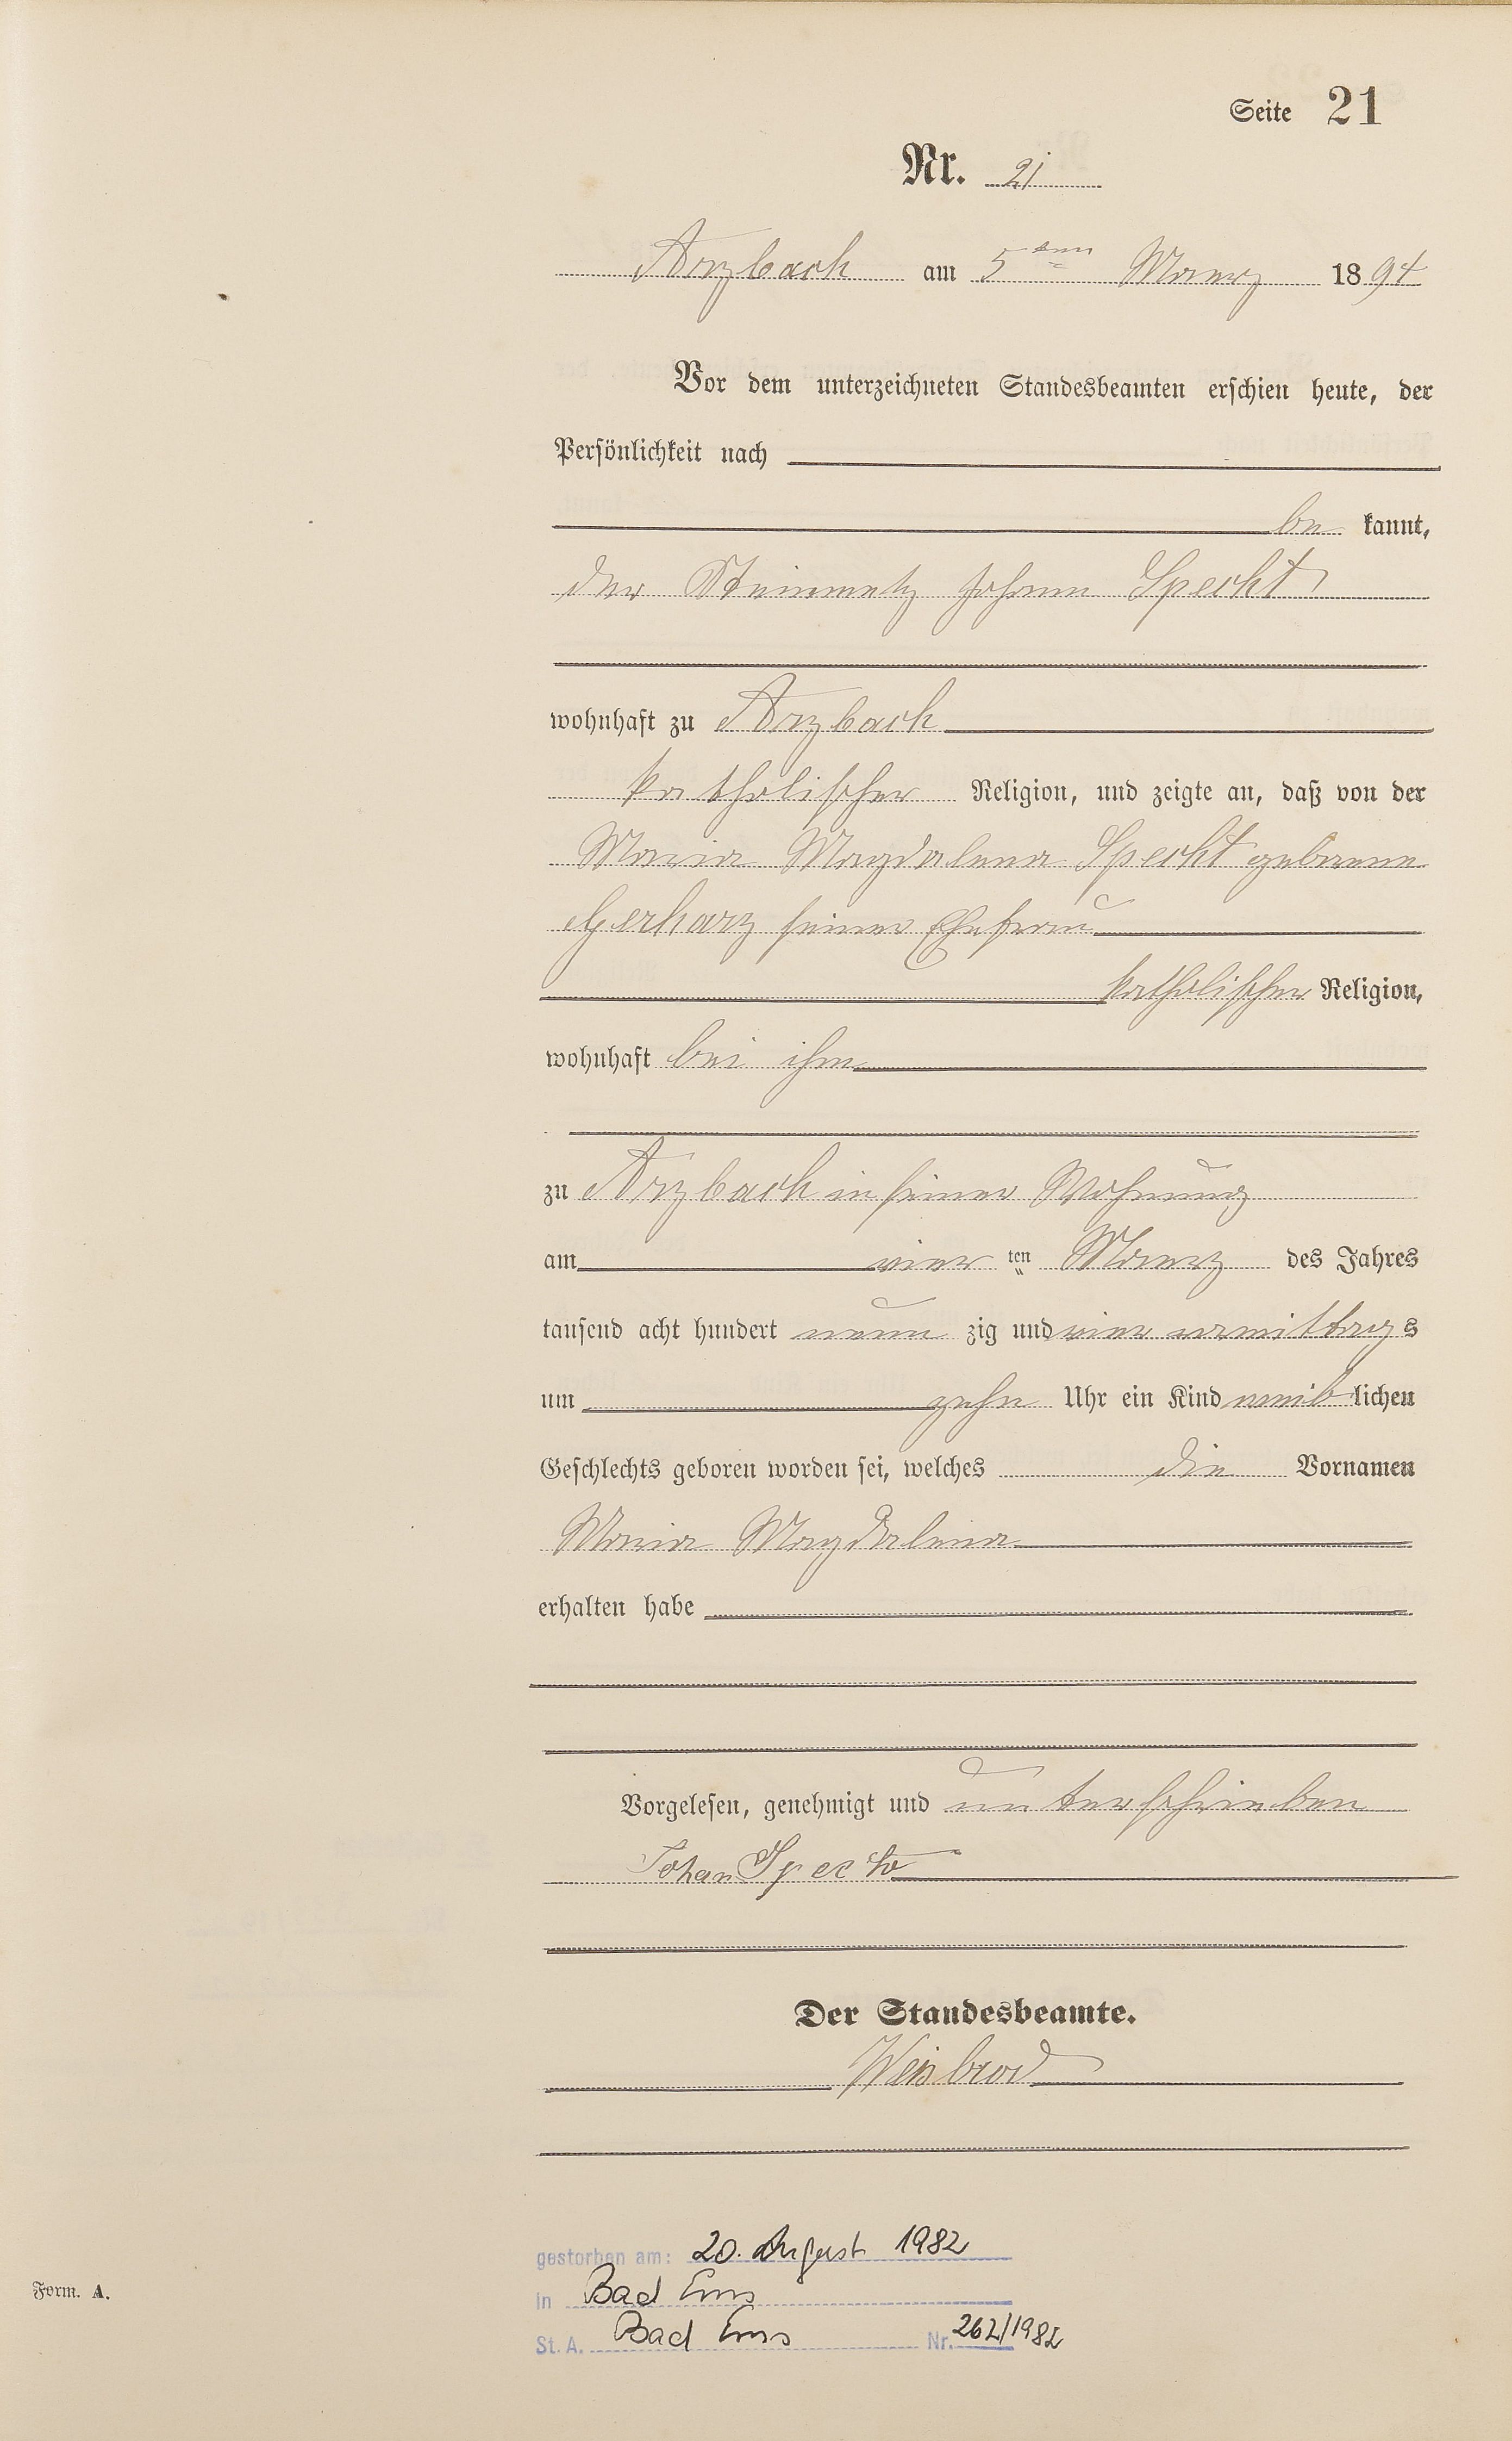 Seite 21
Nr. 21
Arzbach am 5ten Maerz 1894
Vor dem unterzeichneten Standesbeamten erschien heute, der
Persönlichkeit nach
be kannt,
der Steinmetz Johann Specht
wohnhaft zu Arzbach
katholischer Religion, und zeigte an, daß von der
Maria Magdalena Specht geborene
Gerharz seiner Ehefrau
katholischer Religion,
wohnhaft bei ihm
zu Arzbach in seiner Wohnung
am vier ten Maerz des Jahres
tausend acht hundert neun zig und vier vormittags
um zehn Uhr ein Kind weib lichen
Geschlechts geboren worden sei, welches die Vornamen
Maria Magdalena
erhalten habe
Vorgelesen, genehmigt und unterschrieben
Johan Specht
Der Standesbeamte.
Weisbrod
gestorben am: 20. August 1982
in Bad Ems
St. A. Bad Ems Nr. 262/1982
Form. A.